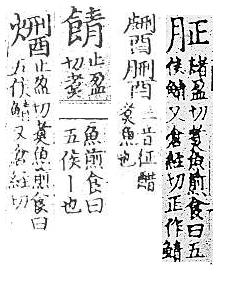 楮盈切煮魚煎食曰五
侯鯖又倉經切正作鯖
二音征醋
煮魚也
止盈
切煮
魚煎食曰
五侯丨也
止盈切煮魚煎食曰
五侯鯖又倉經切